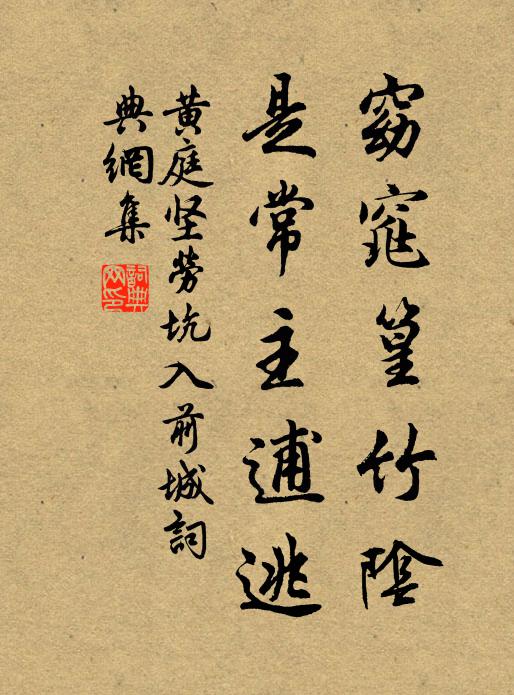 窈窕篁竹陰
是常主逋逃
黃庭坚勞坑入前城詞
典網集
詞典网印